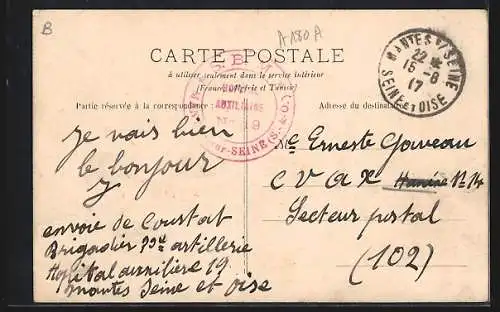 B
A 180 A
CARTE POSTALE
à utiliser seulement dans le service intérieur
(France, Algérie et Tunisie)
Partie réservée à la correspondance
Adresse du destinataire
MANTES S/SEINE
22
16-8
17
SEINE ET OISE
AUXILIAIRE
SEINE (S.-&-O.)
je vais bien
le bonjour
envoie de Coustat
Brigadier artillerie
Hopital auxilière 19
mantes Seine et Oise
Ernest Gouveau
C V A X
Secteur postal
(102)